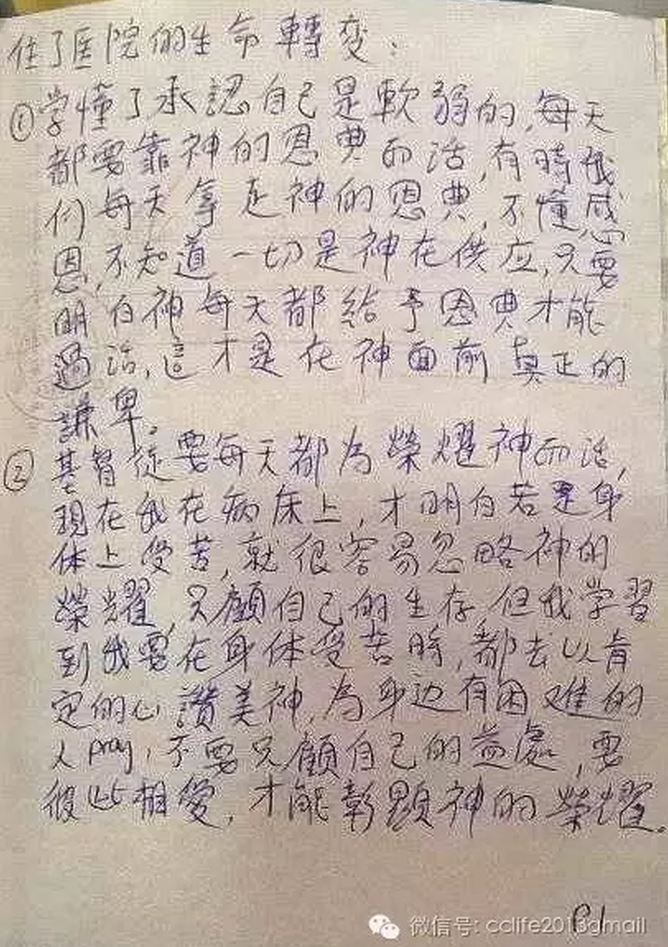 住了医院的生命轉变：
①学懂了承認自己是軟弱的,每天
都要靠神的恩典而活,有時我
们每天拿近神的恩典,不懂感
恩,不知道一切是神在供应,只要
明白神每天都給予恩典才能
過活,這才是在神面前真正的
謙卑。
②基督徒要每天都为榮耀神而活,
現在我在病床上,才明白若是身
体上受苦,就很容易忽略神的
榮耀,只顧自己的生存,但我学習
到我要在身体受苦時,都去以肯
定的心讚美神,為身边有困难的
人pray,不要只顧自己的益處,要
彼此相愛,才能彰顯神的榮耀。
P1
微信号: cclife2013gmail